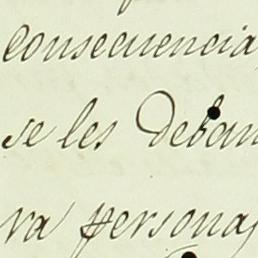 consecuencia,
se les deban
va personas